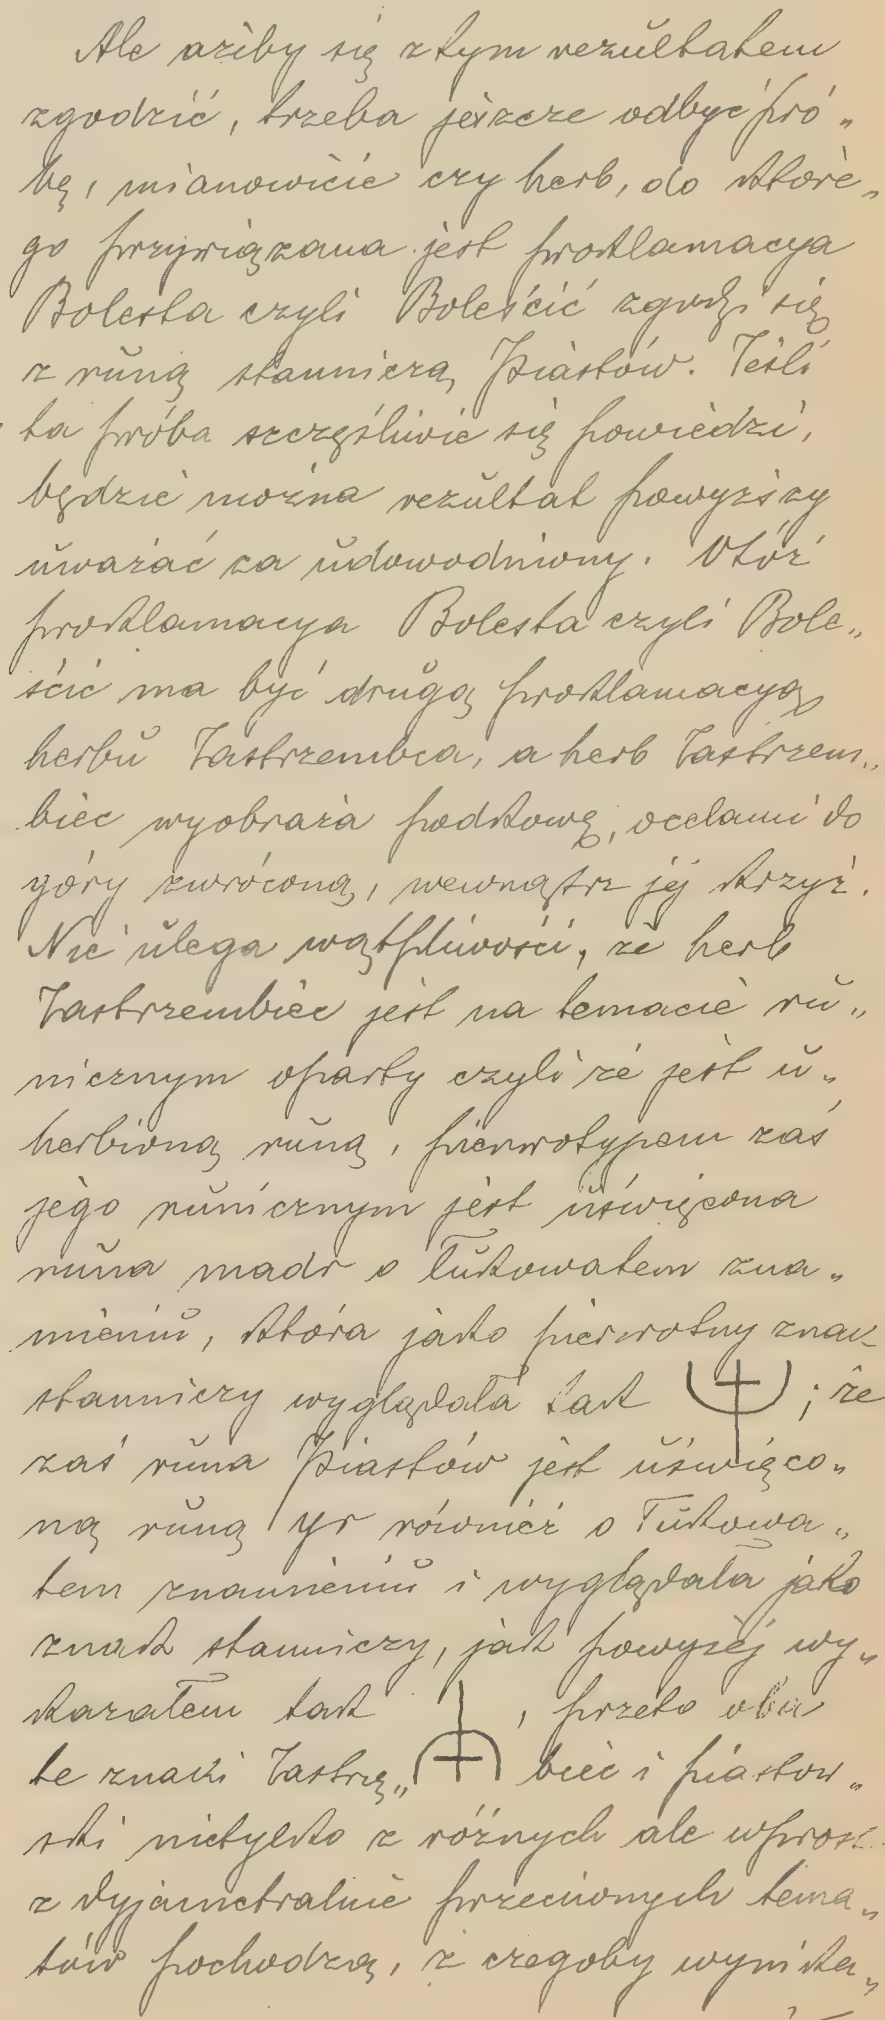 Ale ażeby się z tym rezultatem
zgodzić, trzeba jeszcze odbyć pró„
bę, mianowicie czy herb, do które„
go przywiązana jest proklamacya
Bolesta czyli Boleścić zgodzi się
z runą stanniczą Piastów. Jeśli
ta próba szczęśliwie się powiedzi,
będzie można rezultat powyższy
uważać za udowodniony. Otóż
proklamacya Bolesta czyli Bole„
ścić ma być drugą proklamacyą
herbu Jastrzembca, a herb Jastrzem„
biec wyobraża podkowę, ocelami do
góry zwróconą, wewnątrz jej krzyż.
Nie ulega wątpliwości, że herb
Jastrzembiec jest na temacie ru„
nicznym oparty czyli że jest u„
herbioną runą, pierwotypem zaś
jego runicznym jest uświęcona
runa madr o łukowatem zna„
mieniu, która jako pierwotny znak
stanniczy wyglądała tak ; że
zaś runa Piastów jest uświęco„
ną runą yr również o łukowa„
tem znamieniu i wyglądała jako
znak stanniczy, jak powyżej wy„
kazałem tak , przeto oba
te znaki Jastrzę„ biec i piastow„
ski nietylko z różnych ale wprost
z dyjametralnie przeciwnych tema„
tów pochodzą, z czegoby wynika„